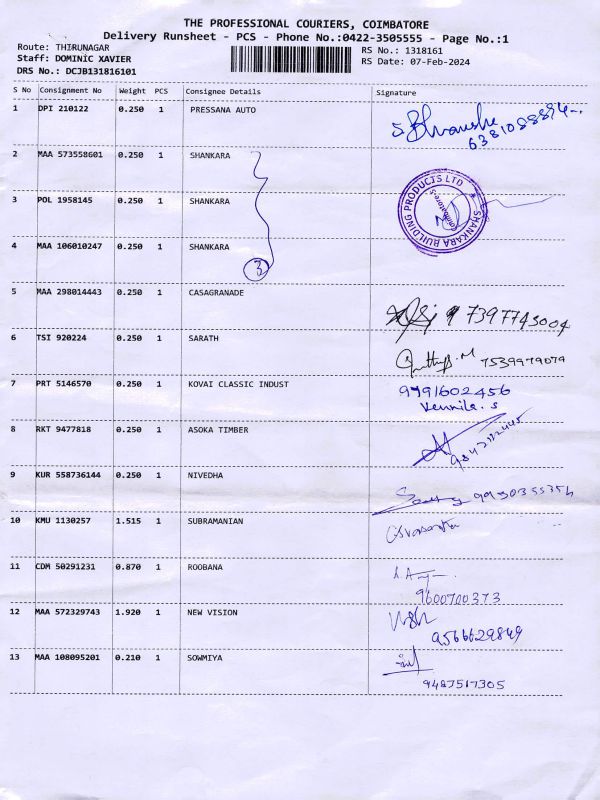 THE PROFESSIONAL COURIERS, COIMBATORE
Delivery Runsheet - PCS - Phone No.:0422-3505555 - Page No.:1
Route: THIRUNAGAR RS No.: 1318161
Staff: DOMINIC XAVIER RS Date: 07-Feb-2024
DRS No.: DCJB131816101
S No Consignment No Weight PCS Consignee Details Signature
1 DPI 210122 0.250 1 PRESSANA AUTO
2 MAA 573558601 0.250 1 SHANKARA
3 POL 1958145 0.250 1 SHANKARA
SHANKARA BUILDING PRODUCTS LTD
Coimbatore
4 MAA 106010247 0.250 1 SHANKARA
3
5 MAA 298014443 0.250 1 CASAGRANADE
7397743004
6 TSI 920224 0.250 1 SARATH
7539979079
7 PRT 5146570 0.250 1 KOVAI CLASSIC INDUST
9791602456
Vennila. s
8 RKT 9477818 0.250 1 ASOKA TIMBER
9 KUR 558736144 0.250 1 NIVEDHA
10 KMU 1130257 1.515 1 SUBRAMANIAN
11 CDM 50291231 0.870 1 ROOBANA
9600700373
12 MAA 572329743 1.920 1 NEW VISION
9566629849
13 MAA 108095201 0.210 1 SOWMIYA
9487517305